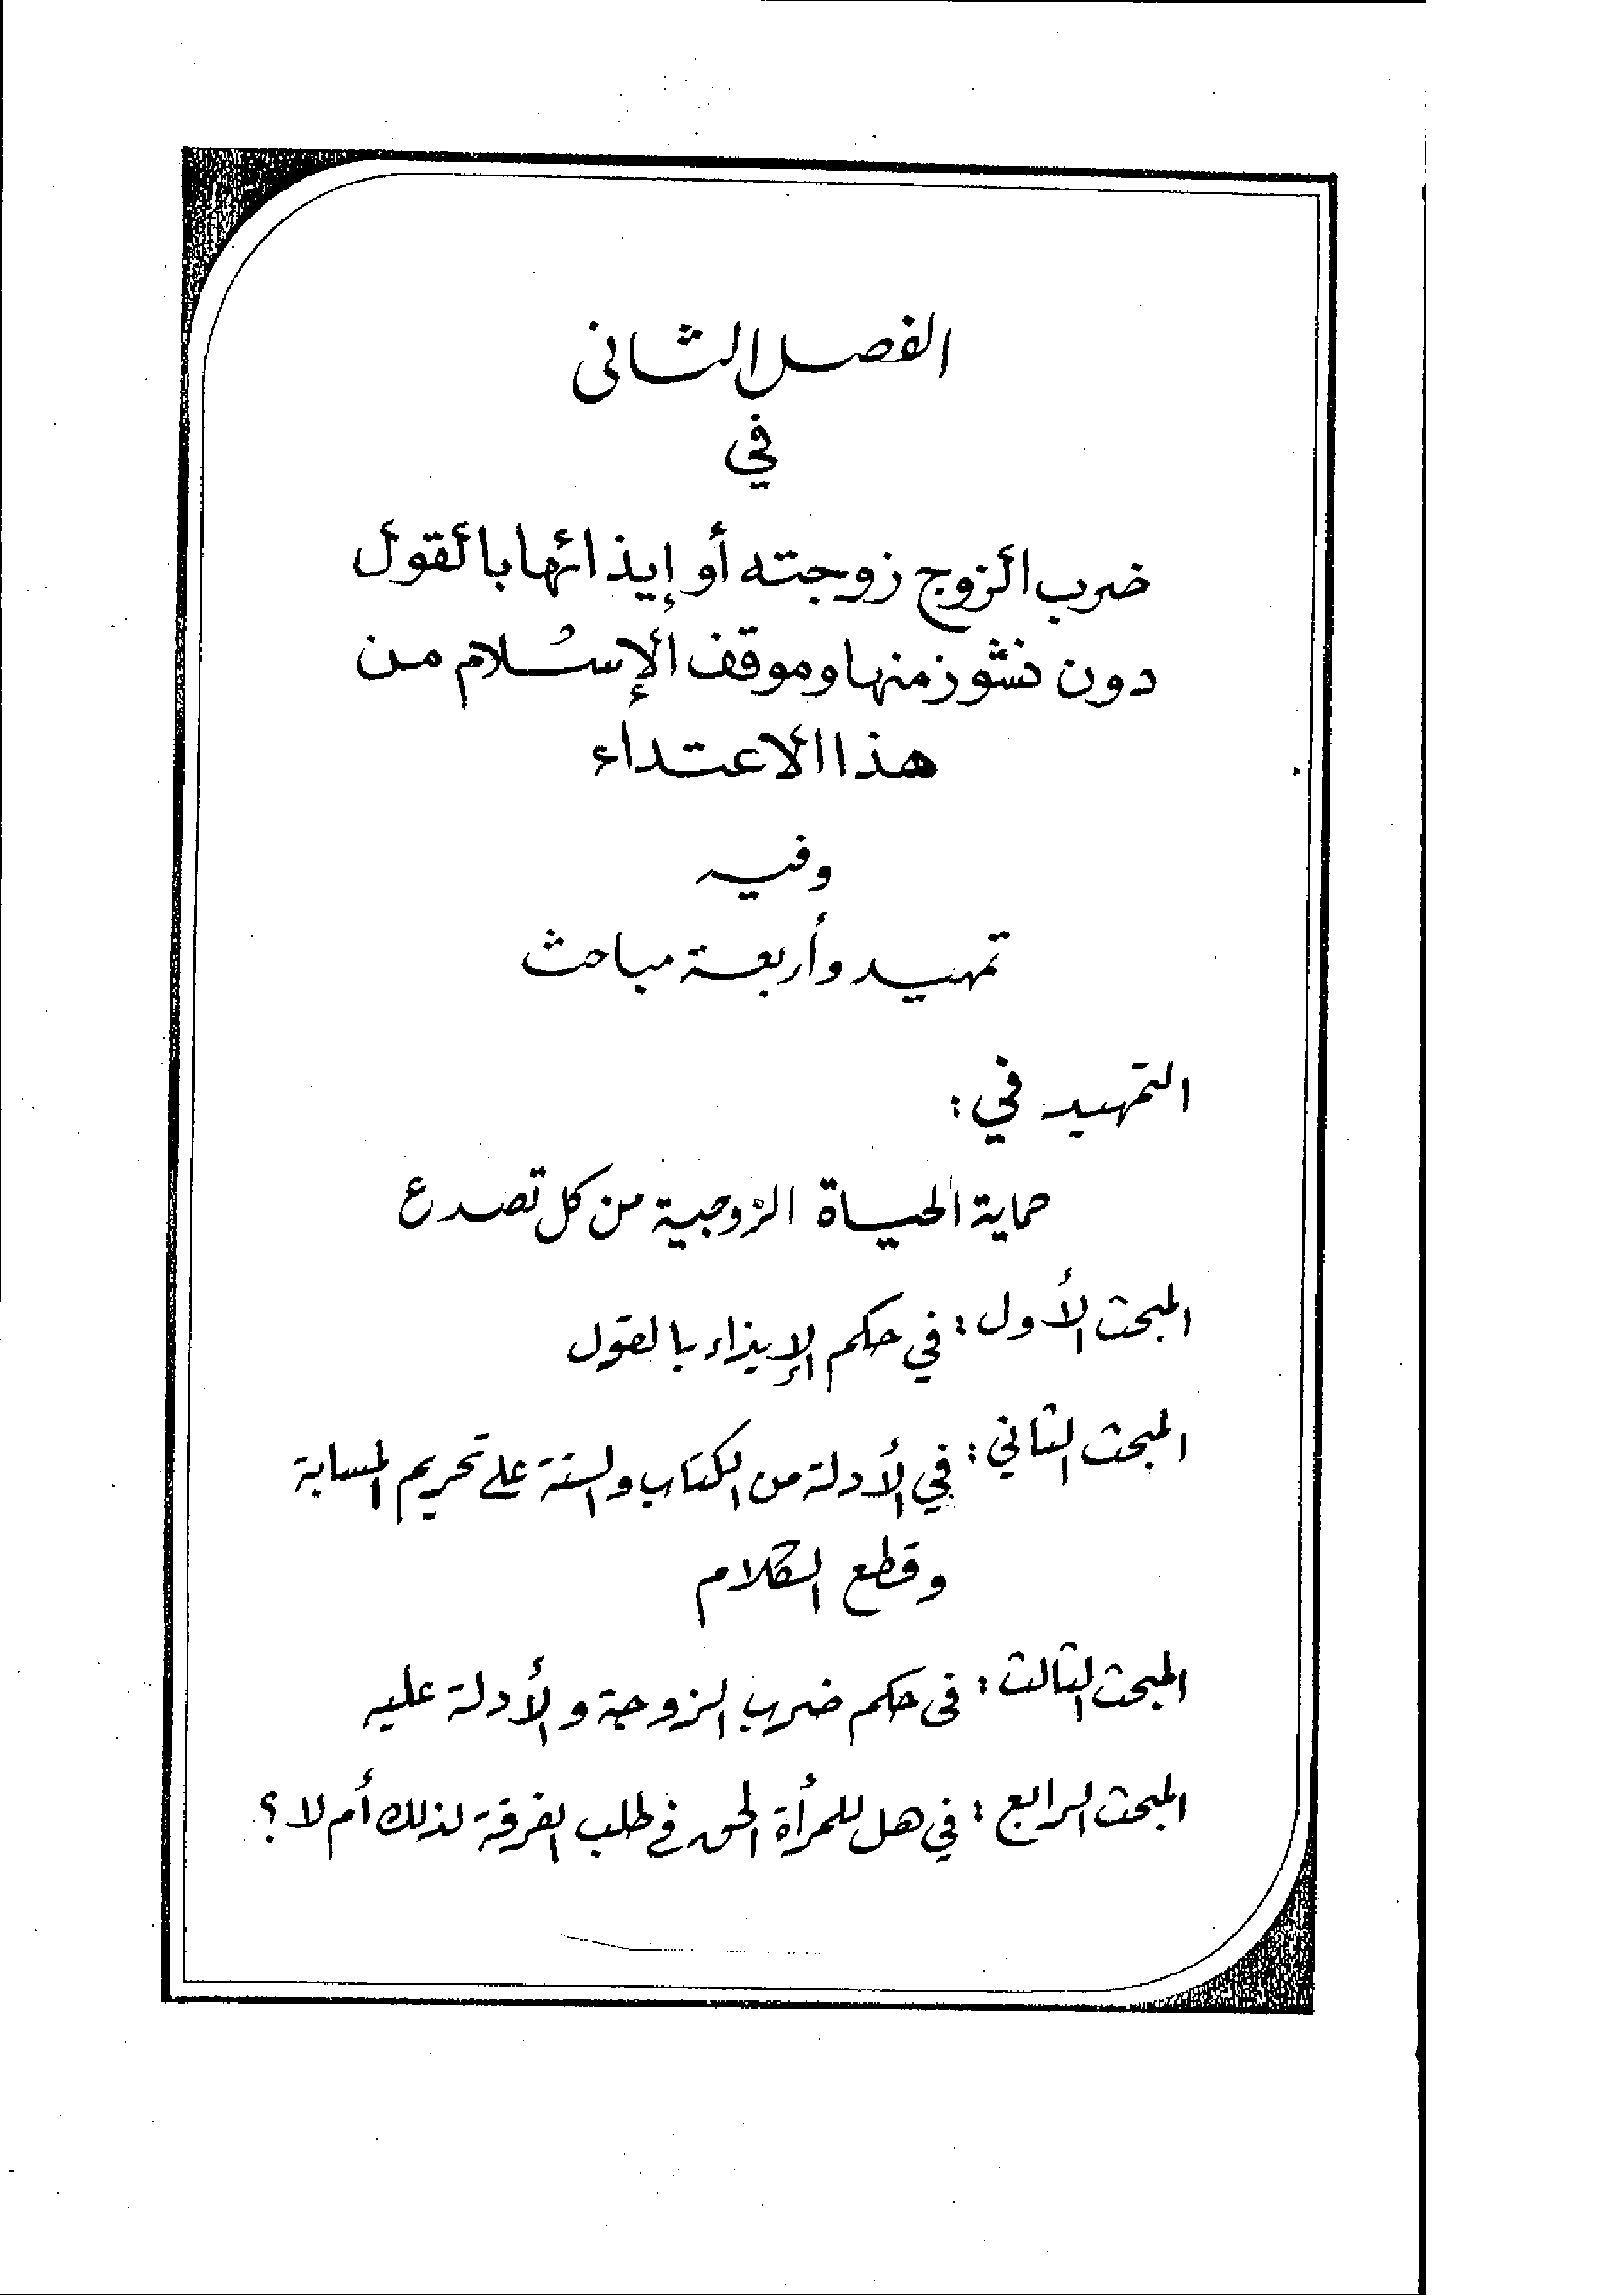 الفصل الثانى
في
ضرب الزوج زوجته أو إيذائها بالقول
دون نشوز منها وموقف الإسلام من
هذا الاعتداء
وفيه
تمهيد وأربعة مباحث
التمهيد في :
حماية الحياة الزوجية من كل تصدع
المبحث الأول : في حكم الإيذاء بالقول
المبحث الثاني : في الأدلة من الكتاب والسنة على تحريم المسابة
وقطع الكلام
المبحث الثالث : فى حكم ضرب الزوجة والأدلة عليه
المبحث الرابع : في هل للمرأة الحق في طلب الفرقة لذلك أم لا ؟